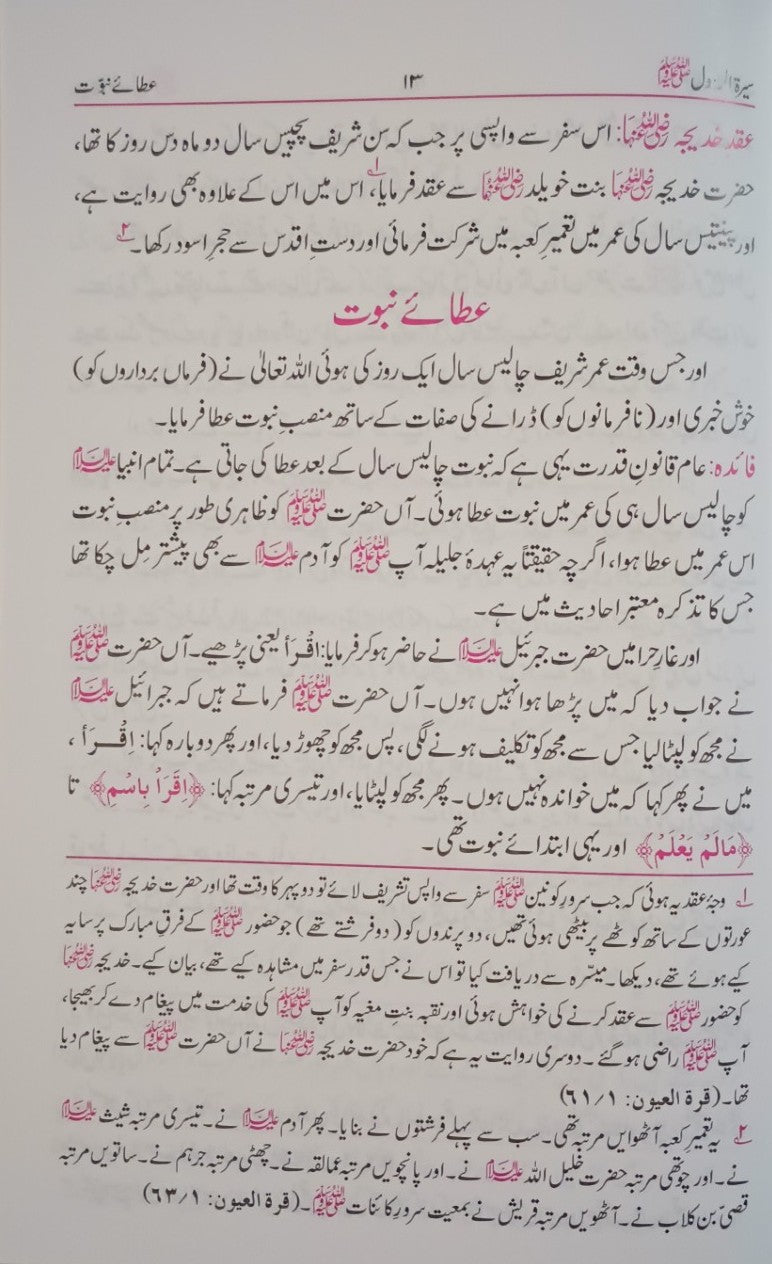 سیرۃ الرسول ﷺ ۱۳ عطائے نبوّت
عقد خدیجہ رضی اللہ عنہا: اس سفر سے واپسی پر جب کہ سن شریف پچیس سال دو ماہ دس روز کا تھا،
حضرت خدیجہ رضی اللہ عنہا بنت خویلد رضی اللہ عنہا سے عقد فرمایا،۱؎ اس میں اس کے علاوہ بھی روایت ہے،
اور پینتیس سال کی عمر میں تعمیرِ کعبہ میں شرکت فرمائی اور دستِ اقدس سے حجرِ اسود رکھا۔۲؎
عطائے نبوت
اور جس وقت عمر شریف چالیس سال ایک روز کی ہوئی اللہ تعالیٰ نے (فرماں برداروں کو)
خوش خبری اور (نافرمانوں کو) ڈرانے کی صفات کے ساتھ منصبِ نبوت عطا فرمایا۔
فائدہ: عام قانونِ قدرت یہی ہے کہ نبوت چالیس سال کے بعد عطا کی جاتی ہے۔ تمام انبیا علیہم السلام
کو چالیس سال ہی کی عمر میں نبوت عطا ہوئی۔ آں حضرت ﷺ کو ظاہری طور پر منصبِ نبوت
اس عمر میں عطا ہوا، اگرچہ حقیقتاً یہ عہدۂ جلیلہ آپ ﷺ کو آدم علیہ السلام سے بھی پیشتر مِل چکا تھا
جس کا تذکرہ معتبر احادیث میں ہے۔
اور غارِ حرا میں حضرت جبرئیل علیہ السلام نے حاضر ہوکر فرمایا: اقْرَأ یعنی پڑھیے۔ آں حضرت ﷺ
نے جواب دیا کہ میں پڑھا ہوا نہیں ہوں۔ آں حضرت ﷺ فرماتے ہیں کہ جبرائیل علیہ السلام
نے مجھ کو لپٹالیا جس سے مجھ کو تکلیف ہونے لگی، پس مجھ کو چھوڑ دیا، اور پھر دوبارہ کہا: اِقْـرَأ،
میں نے پھر کہا کہ میں خواندہ نہیں ہوں۔ پھر مجھ کو لپٹایا، اور تیسری مرتبہ کہا: ﴿اِقْرَاْ بِاسْمِ﴾ تا
﴿مَالَمْ یَعْلَمْ﴾ اور یہی ابتدائے نبوت تھی۔
۱؎ وجۂ عقد یہ ہوئی کہ جب سرورِ کونین ﷺ سفر سے واپس تشریف لائے تو دوپہر کا وقت تھا اور حضرت خدیجہ رضی اللہ عنہا چند
عورتوں کے ساتھ کوٹھے پر بیٹھی ہوئی تھیں، دو پرندوں کو (دو فرشتے تھے) جو حضور ﷺ کے فرقِ مبارک پر سایہ
کیے ہوئے تھے، دیکھا۔ میسّرہ سے دریافت کیا تو اس نے جس قدر سفر میں مشاہدہ کیے تھے، بیان کیے۔ خدیجہ رضی اللہ عنہا
کو حضور ﷺ سے عقد کرنے کی خواہش ہوئی اور نفیسہ بنتِ مغیہ کو آپ ﷺ کی خدمت میں پیغام دے کر بھیجا،
آپ ﷺ راضی ہوگئے۔ دوسری روایت یہ ہے کہ خود حضرت خدیجہ رضی اللہ عنہا نے آں حضرت ﷺ سے پیغام دیا
تھا۔ (قرة العیون: ۶۱/۱)
۲؎ یہ تعمیرِ کعبہ آٹھوایں مرتبہ تھی۔ سب سے پہلے فرشتوں نے بنایا۔ پھر آدم علیہ السلام نے۔ تیسری مرتبہ شیث علیہ السلام
نے۔ اور چوتھی مرتبہ حضرت خلیل اللہ علیہ السلام نے۔ اور پانچویں مرتبہ عمالقہ نے۔ چھٹی مرتبہ جرہم نے۔ ساتویں مرتبہ
قصیّ بن کلاب نے۔ آٹھویں مرتبہ قریش نے بمعیت سرورِ کائنات ﷺ۔ (قرة العیون: ۶۳/۱)